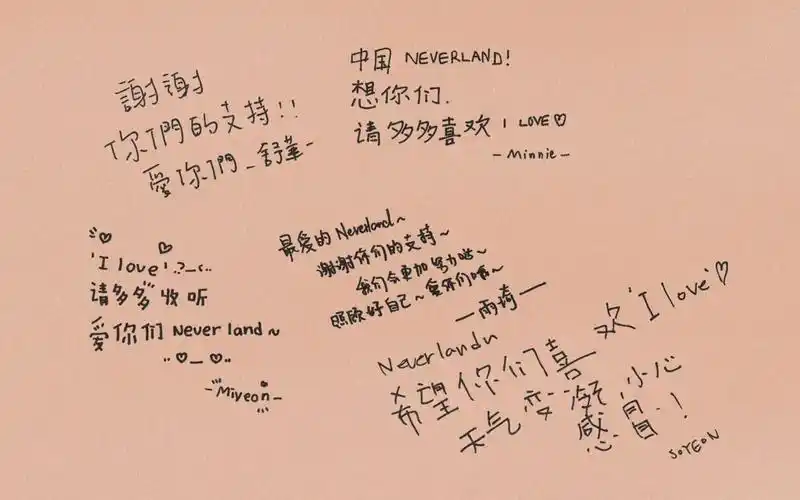 謝謝
你們的支持!!
愛你們_舒華-
中国 NEVERLAND!
想你们.
请多多喜欢 I LOVE♡
- Minnie -
'I love'
请多多收听
爱你们 Never land~
-Miyeon-
最爱的 Neverland~
谢谢你们的支持~
我们会更加努力哒~
照顾好自己~爱你们哦~
—雨琦—
Neverland
希望你们喜欢'I love'♡
天气变 小心
感冒!
SOYEON